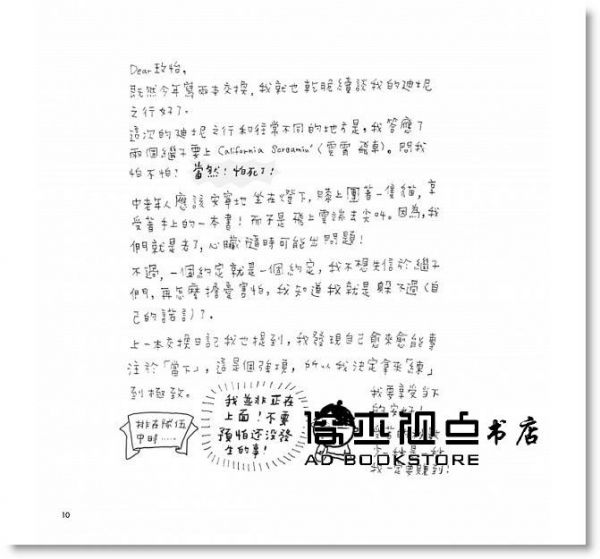 Dear 玫怡,
既然今年寫兩本交換,我就也乾脆續談我的迪坭
之行好了。
這次的迪坭之行和往常不同的地方是,我答應了
兩個繼子要上 California Screamin'(雲霄飛車)。問我
怕不怕? 當然!怕死了!
中老年人應該安寧地坐在燈下,膝上圍著一隻貓,享
受著手上的一本書!而不是飛上雲端去尖叫。因為,我
們就是老了,心臟隨時可能出問題!
不過,一個約定就是一個約定,我不想失信於繼子
們,再怎麼擔憂害怕,我知道我就是躲不過(自
己的諾言)?。
上一本交換日記我也提到,我發現自己愈來愈能專
注於「當下」,這是個強項,所以我決定拿來「練」
到極致。
排在隊伍
中時……
我並非正在
上面!不要
預怕還沒發
生的事!
我要享受當下
的
我一定要賺到!
书店
AD BOOKSTORE
10